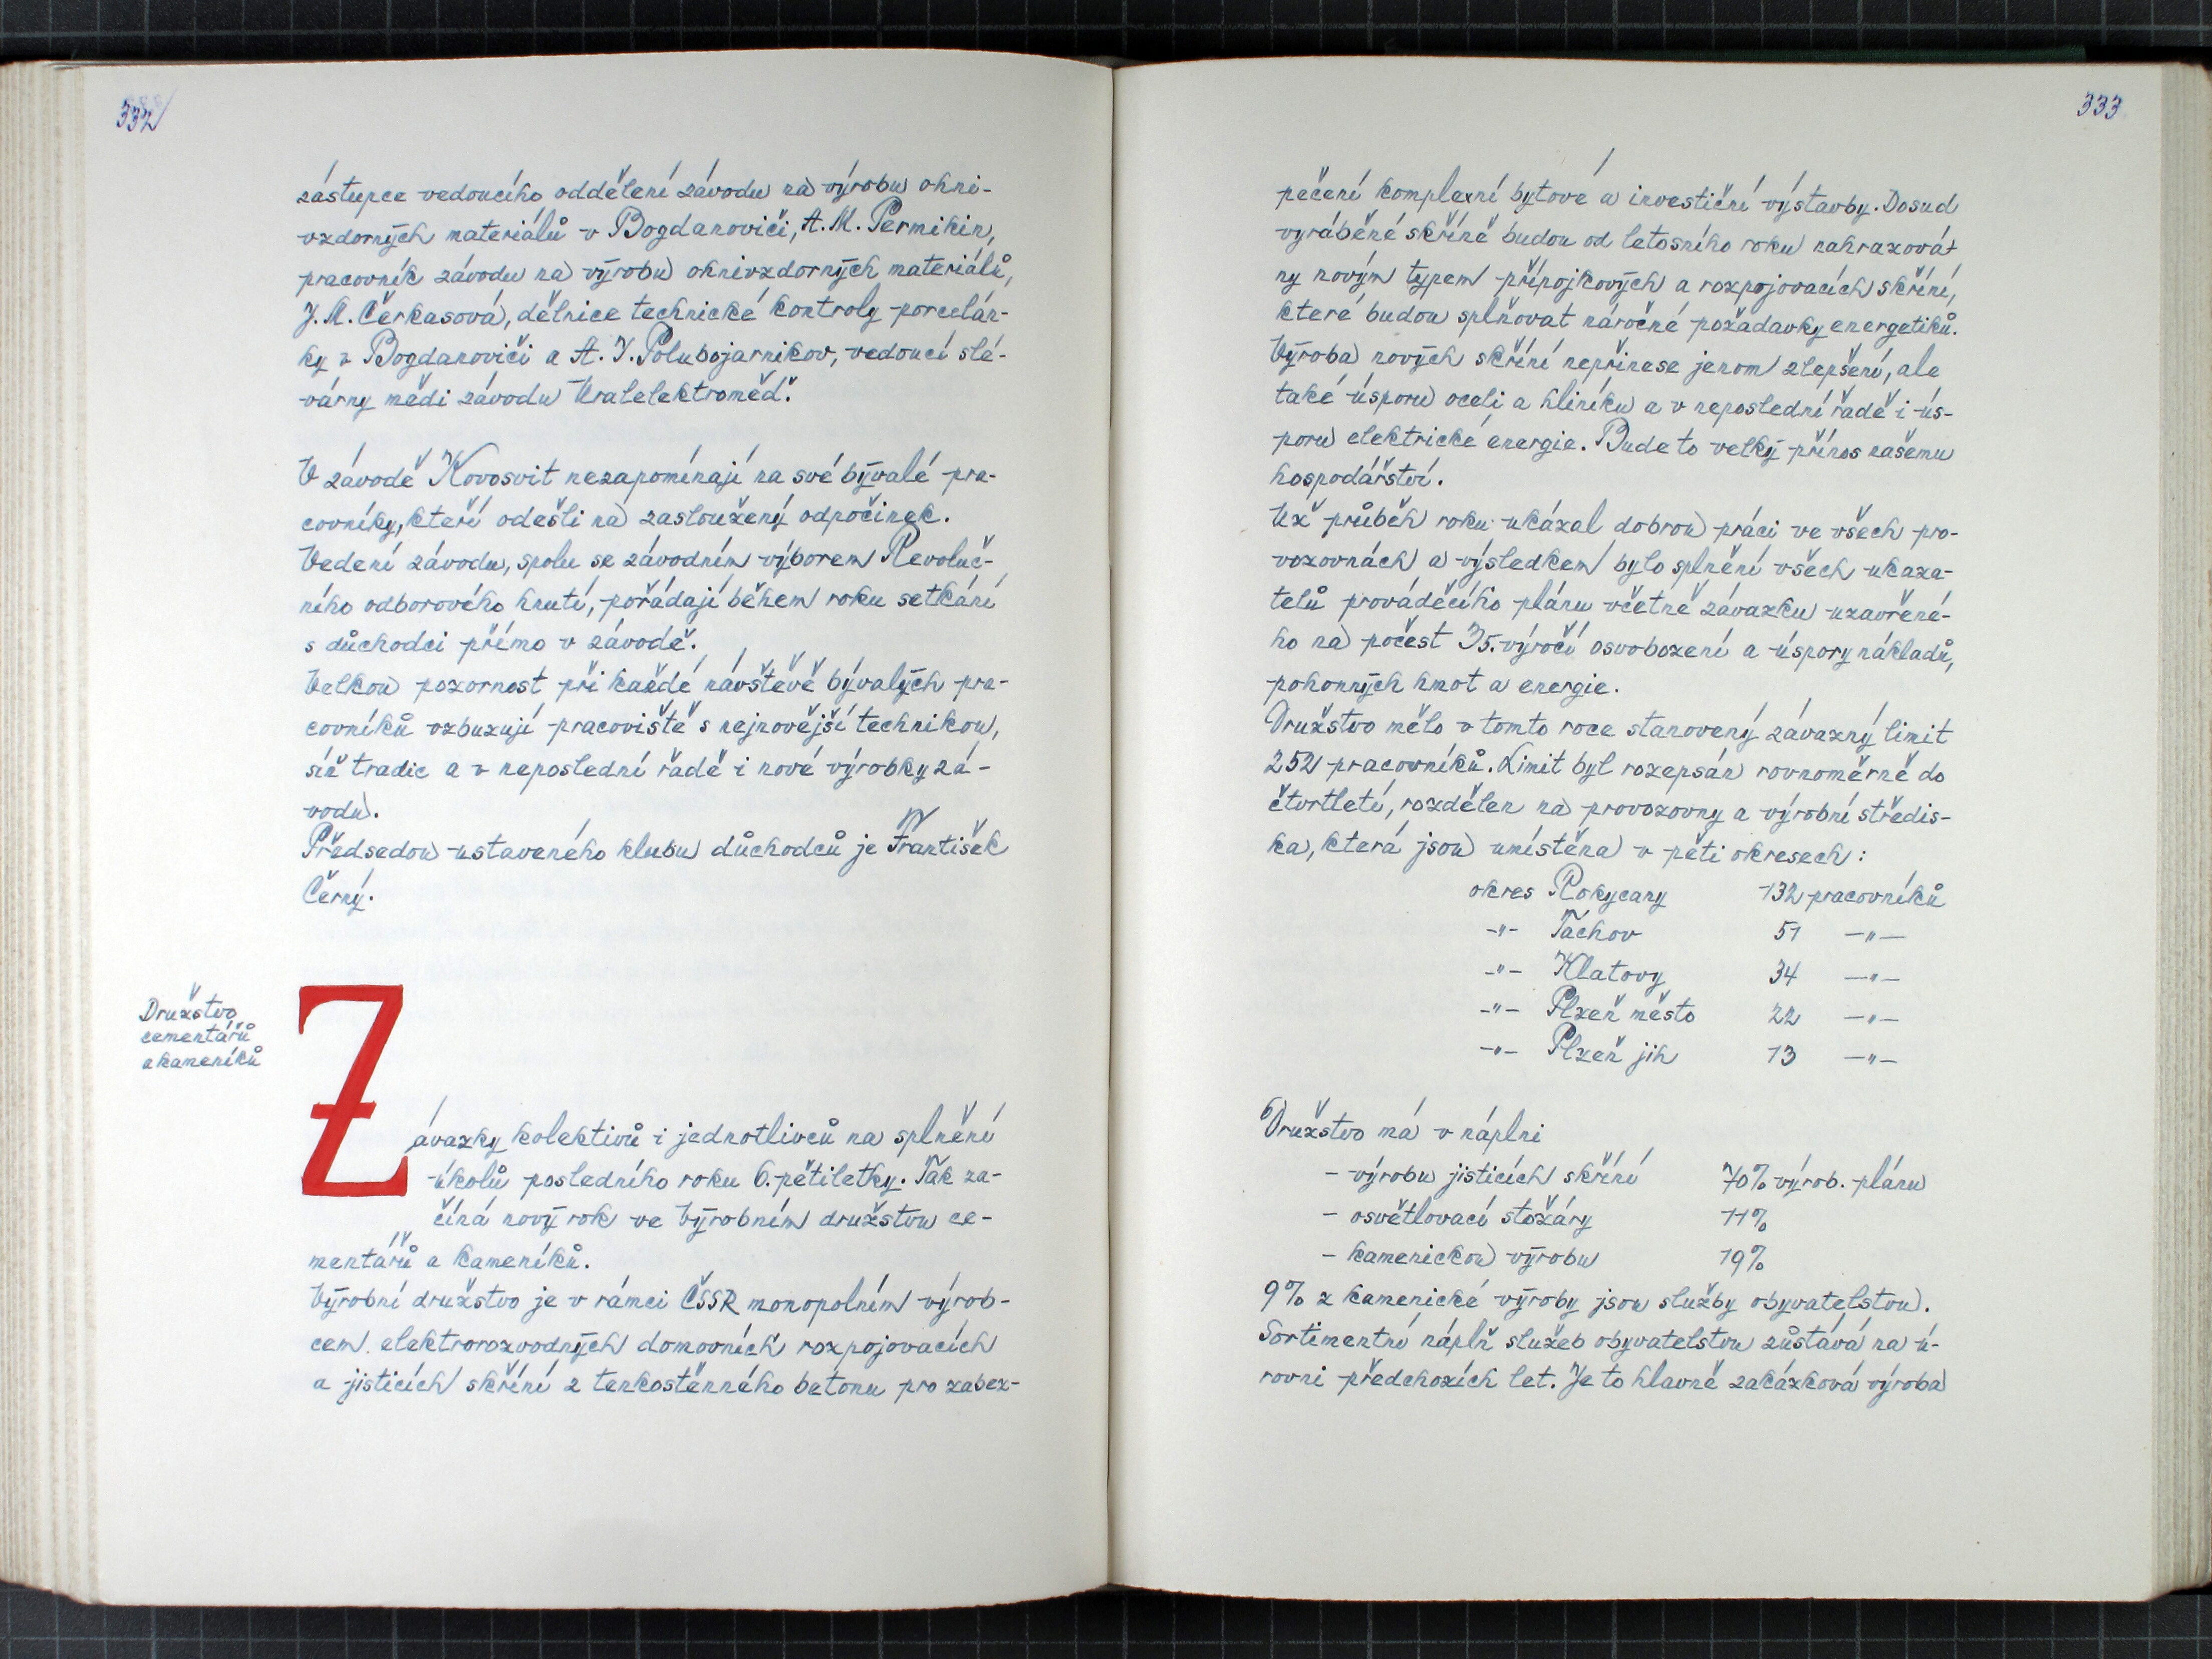 332
zástupce vedoucího oddělení závodu na výrobu ohni-
vzdorných materiálů v Bogdanoviči, A. M. Permikin,
pracovník závodu na výrobu ohnivzdorných materiálů,
J. M. Čerkasová, dělnice technické kontroly porcelán-
ky v Bogdanoviči a A. J. Polubojarnikov, vedoucí slé-
várny mědi závodu Uralelektroměď.
V závodě Kovosvit nezapomínají na své bývalé pra-
covníky, kteří odešli na zasloužený odpočinek.
Vedení závodu, spolu se závodním výborem Revoluč-
ního odborového hnutí, pořádají během roku setkání
s důchodci přímo v závodě.
Velkou pozornost při každé návštěvě bývalých pra-
covníků vzbuzují pracoviště s nejnovější technikou,
síň tradic a v neposlední řadě i nové výrobky zá-
vodu.
Předsedou ustaveného klubu důchodců je František
Černý.
Družstvo
cementářů
a kameníků
Závazky kolektivů i jednotlivců na splnění
úkolů posledního roku 6. pětiletky. Tak za-
číná nový rok ve Výrobním družstvu ce-
mentářů a kameníků.
Výrobní družstvo je v rámci ČSSR monopolním výrob-
cem elektrorozvodných domovních rozpojovacích
a jisticích skříní z tenkostěnného betonu pro zabez-
333
pečení komplexní bytové a investiční výstavby. Dosud
vyráběné skříně budou od letošního roku nahrazová-
ny novým typem přípojkových a rozpojovacích skříní,
které budou splňovat náročné požadavky energetiků.
Výroba nových skříní nepřinese jenom zlepšení, ale
také úsporu oceli a hliníku a v neposlední řadě i ús-
poru elektrické energie. Bude to velký přínos našemu
hospodářství.
Už průběh roku ukázal dobrou práci ve všech pro-
vozovnách a výsledkem bylo splnění všech ukaza-
telů prováděcího plánu včetně závazku uzavřené-
ho na počest 35. výročí osvobození a úspory nákladů,
pohonných hmot a energie.
Družstvo mělo v tomto roce stanovený závazný limit
252 pracovníků. Limit byl rozepsán rovnoměrně do
čtvrtletí, rozdělen na provozovny a výrobní středis-
ka, která jsou umístěna v pěti okresech:
okres Rokycany 132 pracovníků
-"- Tachov 51 -"-
-"- Klatovy 34 -"-
-"- Plzeň město 22 -"-
-"- Plzeň jih 13 -"-
Družstvo má v náplni
- výrobu jisticích skříní 70% výrob. plánu
- osvětlovací stožáry 11%
- kamenickou výrobu 19%
9% z kamenické výroby jsou služby obyvatelstvu.
Sortimentní náplň služeb obyvatelstvu zůstává na ú-
rovni předchozích let. Je to hlavně zakázková výroba